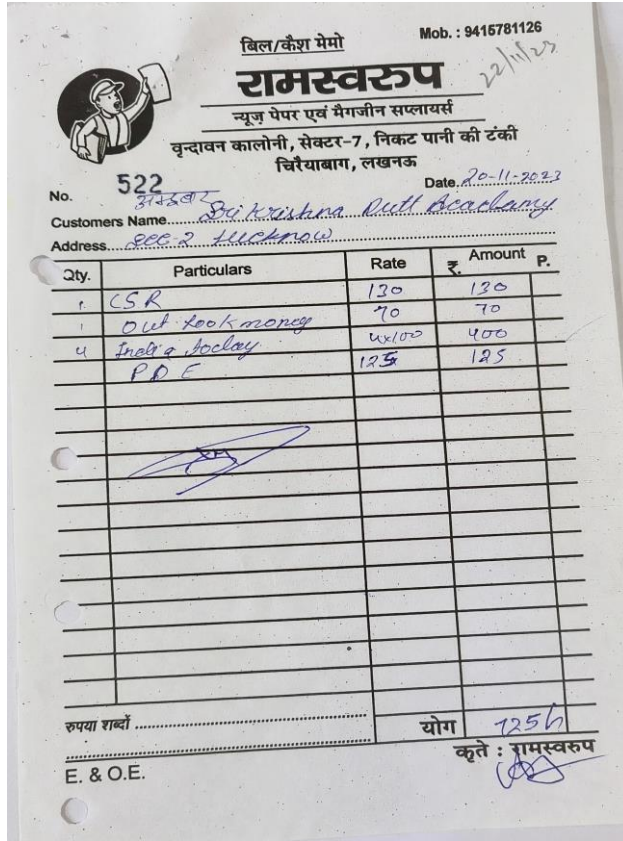 बिल/कैश मेमो
Mob. : 9415781126
22/11/23
रामस्वरुप
न्यूज़ पेपर एवं मैगजीन सप्लायर्स
वृन्दावन कालोनी, सेक्टर-7, निकट पानी की टंकी
चिरैयाबाग, लखनऊ
No. 522 Date. 20-11-2023
अक्टूबर
Customers Name Sri Krishna Dutt Academy
Address Sec-2 Lucknow
Qty. Particulars Rate ₹. Amount P.
1 CSR 130 130
1 Out Look money 70 70
4 India Today 4x100 400
PDE 125 125
रुपया शब्दों
योग 725/-
कृते : रामस्वरुप
E. & O.E.